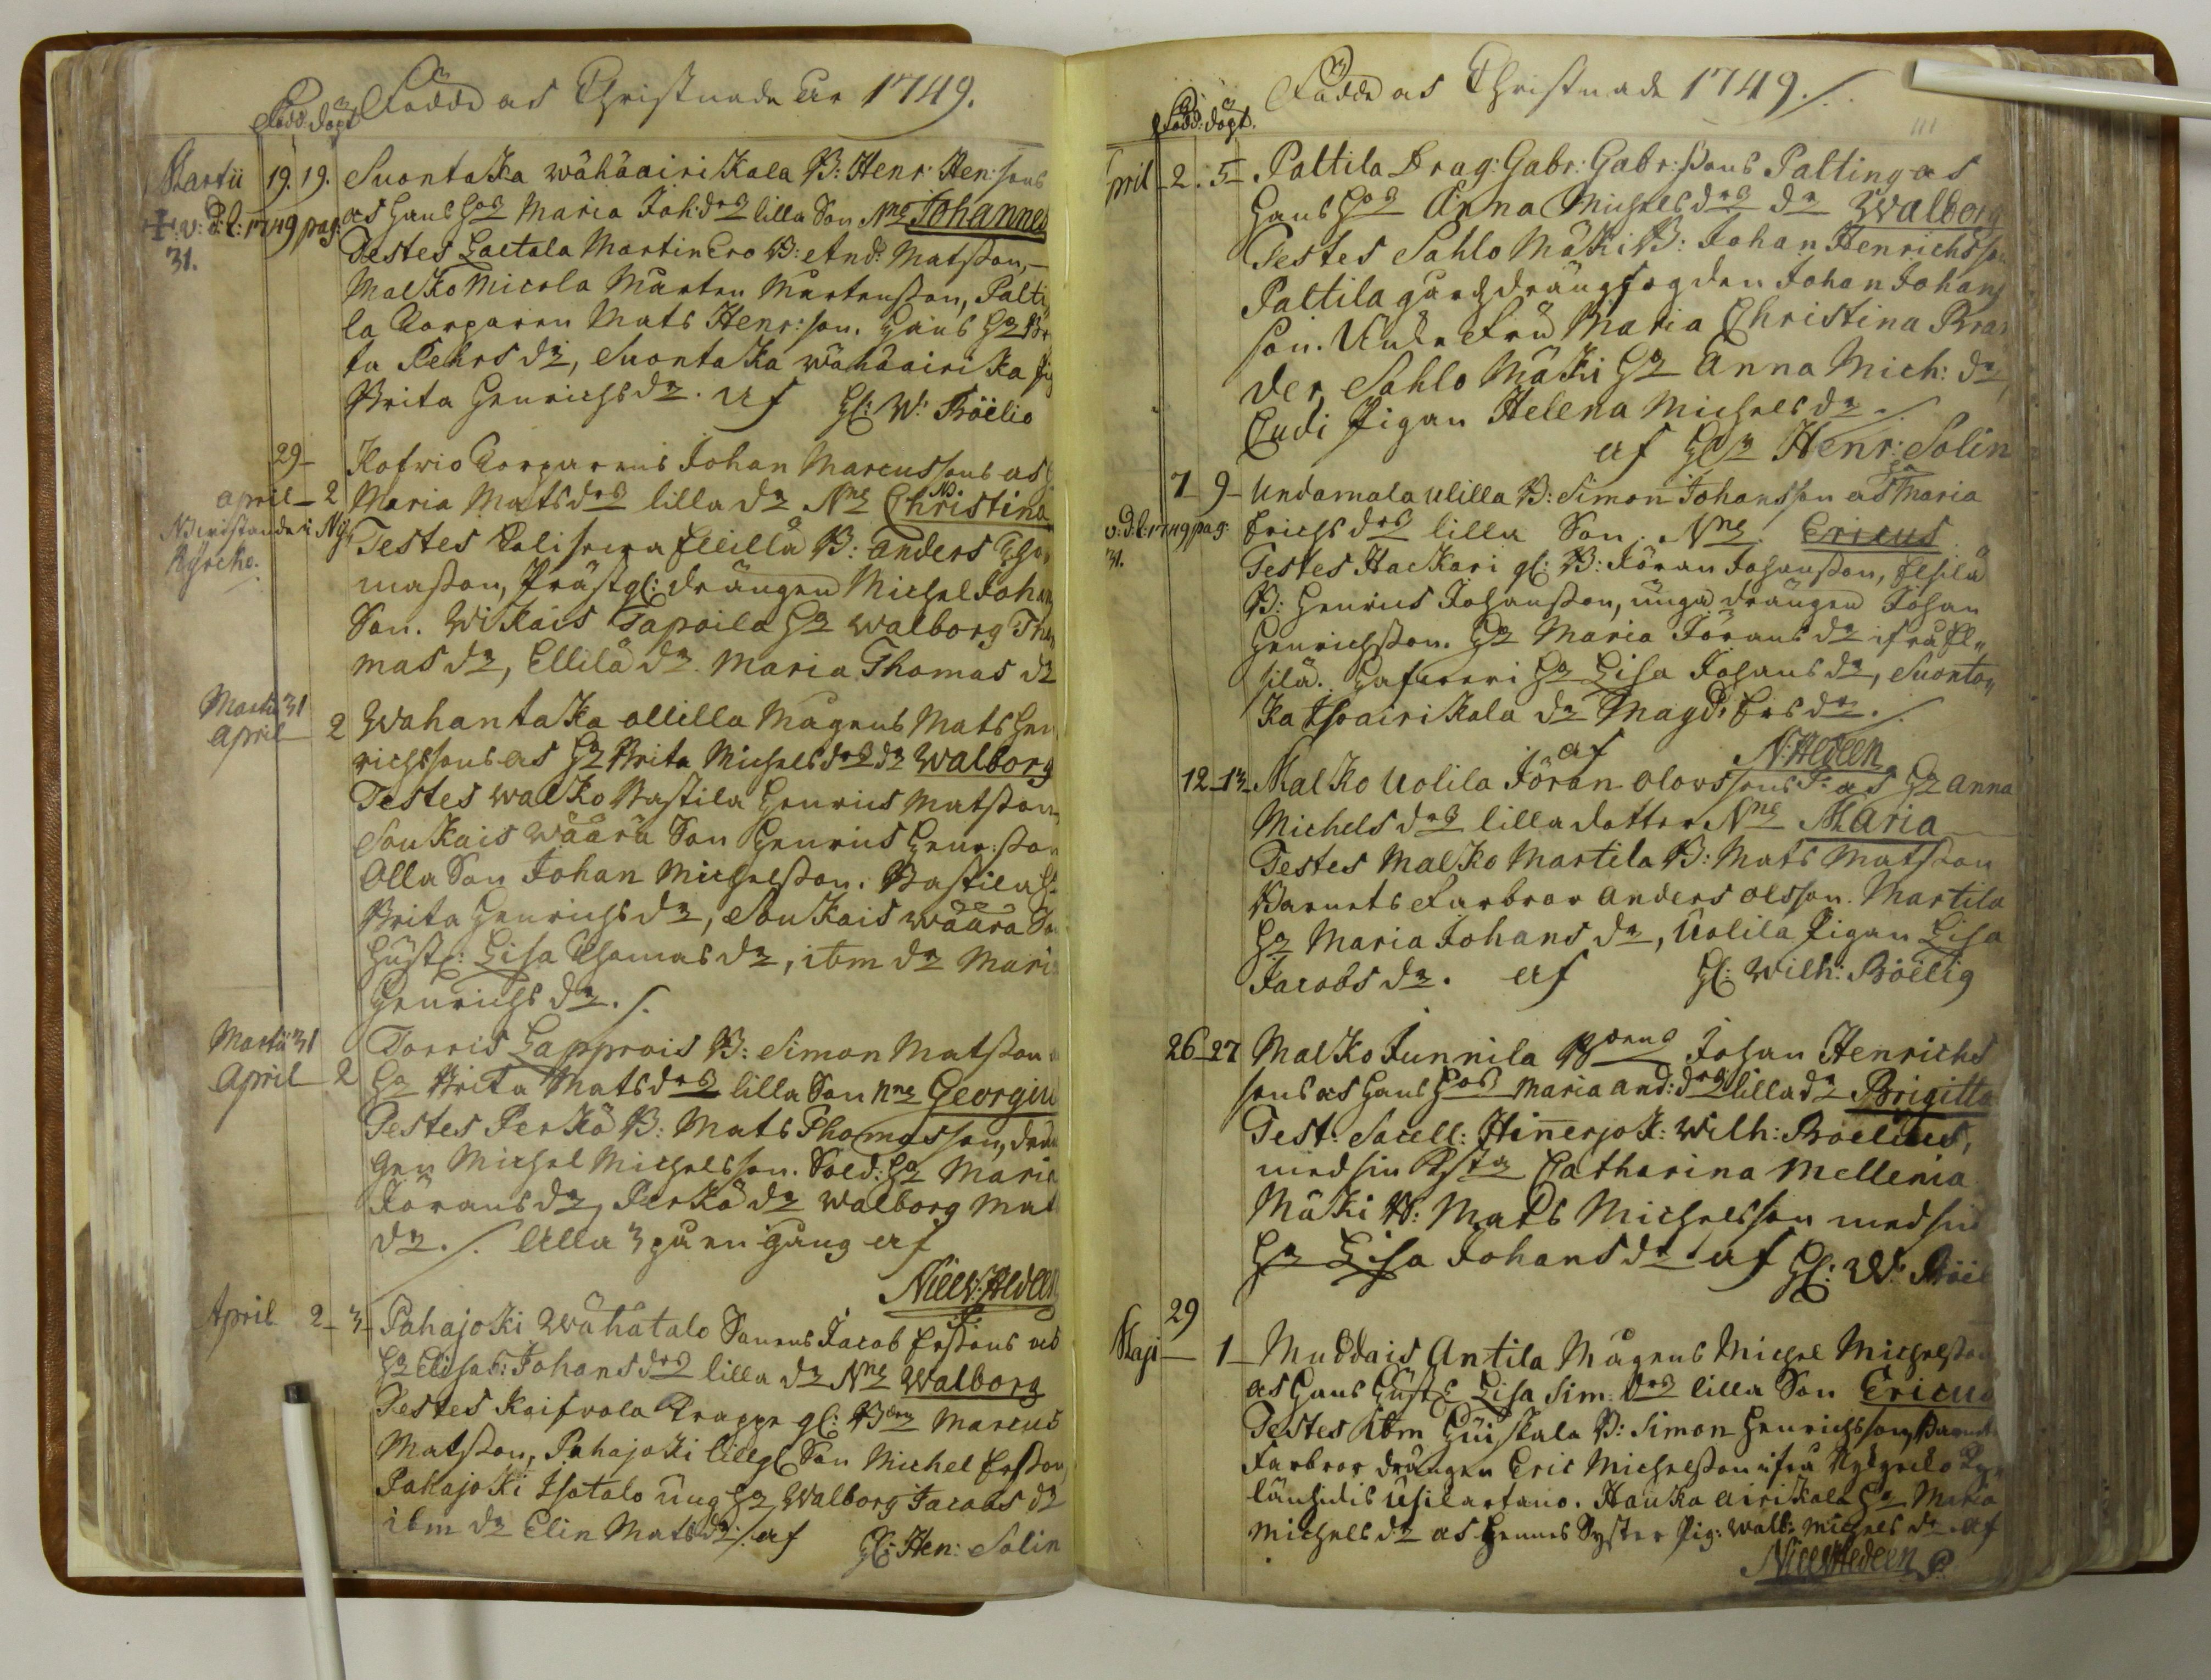 Födde as Christnade År 1749.
Född. döpt
Martii 19. 19. Suontaka wähäairikala B: Henr: Hen:sons
as hans ho˜s Maria Joh:drs lilla Son Nne Johannes
v: d:l: 1749 pag: 31.
Testes Laetala Martin Ero B: And: Matsson,
Malko Micola Mårten Mårtensson, Palti
la Torparen Mats Henr:son. hans ho
ta Pehrs dr, Suontaka wähäairika
Brita Henrichs dr. af H: W: Böelio
29 Kofwio Torparens Johan Marcussons as
april 2 Maria Mats drs lilla dr Nne NB. Christina
Testes Ellilä B: Anders Tho
Kyrcko.
masson, Prästg: drängen Michel Johan
Son. Wikais Tapoila ha Walborg Tho
mas dr, Ellilä dr. Maria Thomas dr
Martii 31
April 2 Wahantaka Ollilla Mågens Mats Hen
richssons as ha Brita Michels drs dr Walborg
Testes Walko Bastila Henrics Matsson,
Soukais Wäärä Son Henrics Henr:sson
Olla Son Johan Michelsson. Bastila h:
Brita Henrichs dr, Soukais Wäärä So
Hust: Lisa Thomas dr, ibm dr Mari
Henrichs dr./.
Martii 31 Torris Lapprois B: Simon Matsson
April 2 ha Brita Mats drs lilla Son Nne Georgiu
Testes Perkö B: Mats Thomasson, drän
gen Michel Michelsson. Sold: ha Maria
Jörans dr, Perkö dr Walborg Mat
dr./. Alla 3 på en gång af
Nic: W: Aedeen
April 2 3 Pahajoki Wähätalo Sonens Jacob Ersons as
ha Elisab: Johans drs lilla dr Nne Walborg
Testes Kaifvola Trappe gl: B Marcus
Matsson, Pahajoki lillgl Son Michel Ersson
Pahajoki Isotalo ung ha Walborg Jacobs dr
ibm dr Elin Mats dr./. af H: Hen: Solin
Födde as Christnade 1749./.
111
Född. döpt.
pril 2. 5 Paltila Drag: Gabr: Gabr:sons Palting as
hans hos Anna Michels drs dr Walborg
Testes Sahlo Mäki B: Johan Henrichsson
Paltila gårds drängfogden Johan Johans
son. Maria Christina Bran
der, Sahlo Mäki ha Anna Mich: dr,
Pigan Helena Michels dr./
af Henr: Solin
7 9 Undamala Ulilla B: Simon Johansson as ha Maria
v: d:l: 1749 pag: 31.
Erichs drs lilla Son. Nne Ericus
Testes Hackari gl: B: Jöran Johansson, Elsilä
B: Henrics Johansson, unga drängen Johan
Henrichsson. ha Maria Jörans dr ifrå El„
silä. ha Lisa Johans dr, Suonta„
ka Isoairikala dr Magd: Ers dr./.
af N: Aedeen
12 13 Malko Uolila Jöran Olovssons as ha Anna
Michels drs lilla dotter Nne Maria
Testes Malko Martila B: Mats Matsson
Barnets Farbror Anders Olsson. Martila
ha Maria Johans dr, Uolila Pigan Lisa
Jacobs dr. af H: Wilh: Böelig
26 27 Malko Junnila B Johan Henrichs
sons as hans hos Maria And: drs lilla dr Brigitta
Test: Sacell: Hinnerjok: Wilh: Boelius,
med sin Catharina Mellenia
Mäki B: Mats Michelsson med sin
ha Lisa Johans dr. af H: W: Böel
29
Maji 1 Muddais Antila Mågens Michel Michelsson
as hans Hust: Lisa Sim: drs lilla Son Ericus
Testes ibm Huiskala B: Simon Henrichsson, Barnets
Farbror drängen Eric Michelsson ifrå Nykyrcko
Hauka airikala ha Maria
Michels dr as hennes Syster Pig: Walb: Michels dr. af
Nic: Aedeen